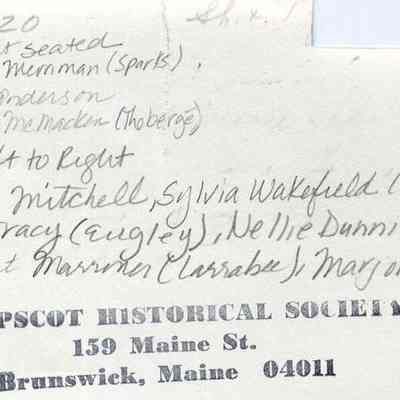 20
t seated
Merriman (Sparks),
anderson
McMacken (Thoberge)
t to Right
Mitchell, Sylvia Wakefield (
racy (Eugley), Nellie Dunni
t Marriner (Larrabee), Marjo
PSCOT HISTORICAL SOCIETY
159 Maine St.
Brunswick, Maine 04011